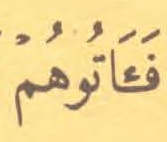 فَـَٔاتُوهُمْ